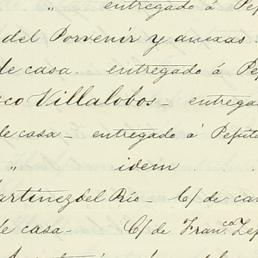 " entregado á Pep
del Porvenir y anexas.
de casa. entregado á
co Villalobos - entrega
de casa - entregado á Pepito
" idem
artinez del Rio - C/ de ca
de casa - C/ de Fran.co Lep